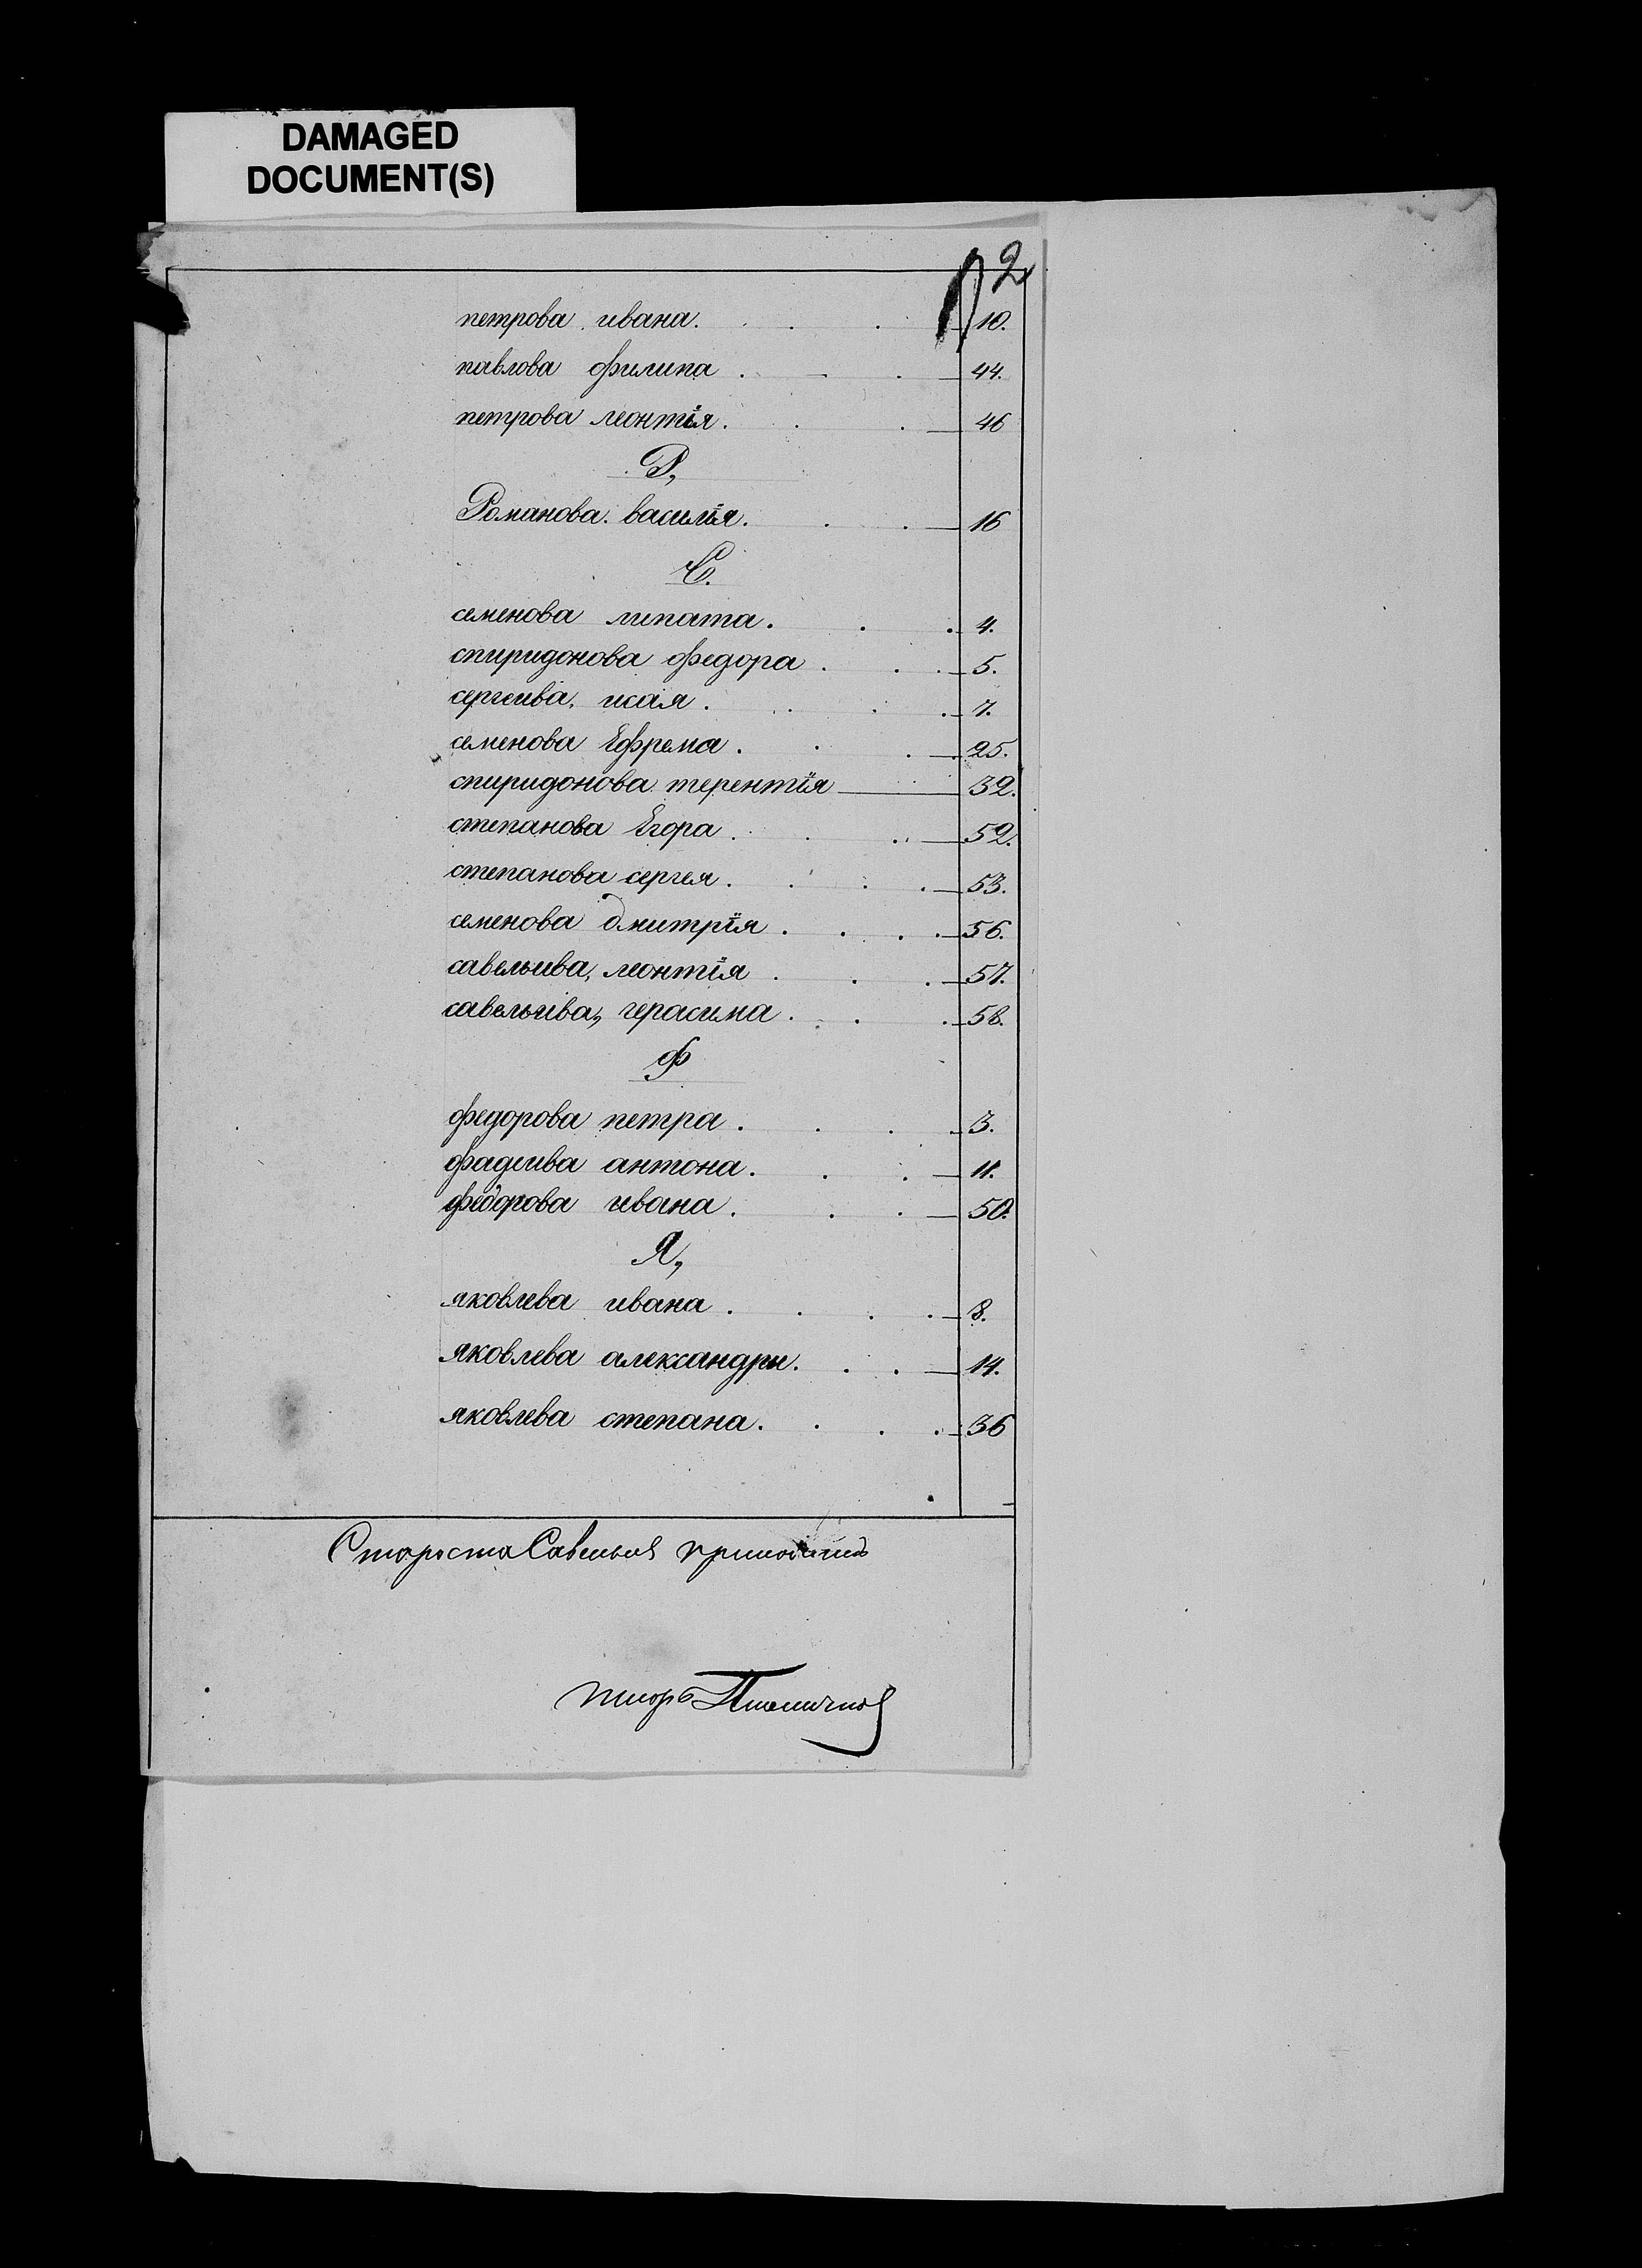 DAMAGED
DOCUMENT(S)
2
петрова ивана. 10.
павлова филипа 44.
петрова леонтія. 46
Р,
Романова. василія. 16
С.
семенова липата. 4.
спиридонова федора. 5.
сергеива, исая. 7.
семенова Ефрема. 25.
спиридонова терентія 32.
степанова Егора. 52.
степанова сергея. 53.
семенова дмитрія. 56.
савельива, леонтія 57.
савельива, герасима. 58.
Ф
федорова петра. 3.
фадеива антона. 11.
федорова ивана. 50.
Я,
яковлева ивана. 8.
яковлева александры. 14.
яковлева степана. 36
Староста Савельев
писарь